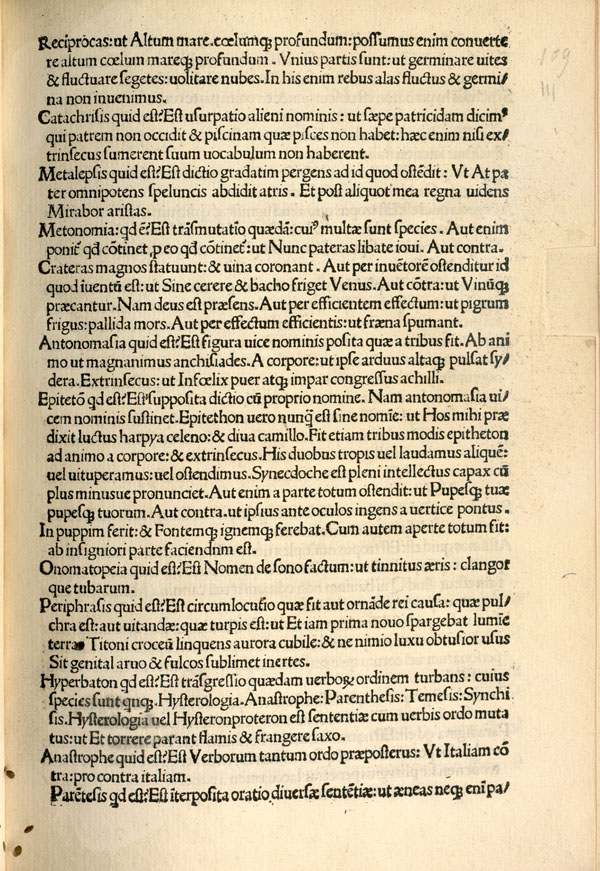 Reciprocas: ut Altum mare. cœlumq; profundum: possumus enim conuerte
re altum cœlum mareq; profundum. Vnius partis sunt: ut germinare uites
& fluctuare segetes: uolitare nubes. In his enim rebus alas fluctus & germi/
na non inuenimus.
Catachrisis quid est? Est usurpatio alieni nominis: ut sæpe patricidam dicimꝰ
qui patrem non occidit & piscinam quæ pisces non habet: hæc enim nisi ex/
trinsecus sumerent suum uocabulum non haberent.
Metalepsis quid est? Est dictio gradatim pergens ad id quod ostẽdit: Vt At pa
ter omnipotens speluncis abdidit atris. Et post aliquot mea regna uidens
Mirabor aristas.
Metonomia: qd ẽ? Est trãsmutatio quædã: cuiꝰ multæ sunt species. Aut enim
ponit' qd cõtinet, p eo qd cõtinet': ut Nunc pateras libate ioui. Aut contra.
Crateras magnos statuunt: & uina coronant. Aut per inuẽtorẽ ostenditur id
quod iuentũ est: ut Sine cerere & bacho friget Venus. Aut cõtra: ut Vinũq;
præcantur. Nam deus est præsens. Aut per efficientem effectum: ut pigrum
frigus: pallida mors. Aut per effectum efficientis: ut fræna spumant.
Antonomasia quid est? Est figura uice nominis posita quæ a tribus fit. Ab ani
mo ut magnanimus anchisiades. A corpore: ut ipse arduus altaq; pulsat sy/
dera. Extrinsecus: ut Infœlix puer atq; impar congressus achilli.
Epitetõ qd est? Est supposita dictio cũ proprio nomine. Nam antonomasia ui/
cem nominis sustinet. Epitethon uero nunq̃ est sine nomie: ut Hos mihi præ
dixit luctus harpya celeno: & diua camillo. Fit etiam tribus modis epitheton
ad animo a corpore: & extrinsecus. His duobus tropis uel laudamus aliquẽ:
uel uituperamus: uel ostendimus. Synecdoche est pleni intellectus capax cũ
plus minusue pronunciet. Aut enim a parte totum ostendit: ut Pupesq; tuæ
pupesq; tuorum. Aut contra. ut ipsius ante oculos ingens a uertice pontus.
In puppim ferit: & Fontemq; ignemq; ferebat. Cum autem aperte totum fit:
ab insigniori parte faciendnm est.
Onomatopeia quid est? Est Nomen de sono factum: ut tinnitus æris: clangor
que tubarum.
Periphrasis quid est? Est circumlocutio quæ fit aut ornãde rei causa: quæ pul/
chra est: aut uitandæ: quæ turpis est: ut Et iam prima nouo spargebat lumĩe
terras Titoni croceũ linquens aurora cubile: & ne nimio luxu obtusior usus
Sit genital aruo & sulcos sublimet inertes.
Hyperbaton qd est? Est trãsgressio quædam uerboꝝ ordinem turbans: cuius
species sunt qnq;. Hysterologia. Anastrophe: Parenthesis: Temesis: Synchi
sis. Hysterologia uel Hysteronproteron est sententiæ cum uerbis ordo muta
tus: ut Et torrere parant flamis & frangere saxo.
Anastrophe quid est? Est Verborum tantum ordo præposterus: Vt Italiam cõ
tra: pro contra italiam.
Parẽtesis qd est? Est ĩterposita oratio diuersæ sentẽtiæ: ut æneas neq; enĩ pa/
109